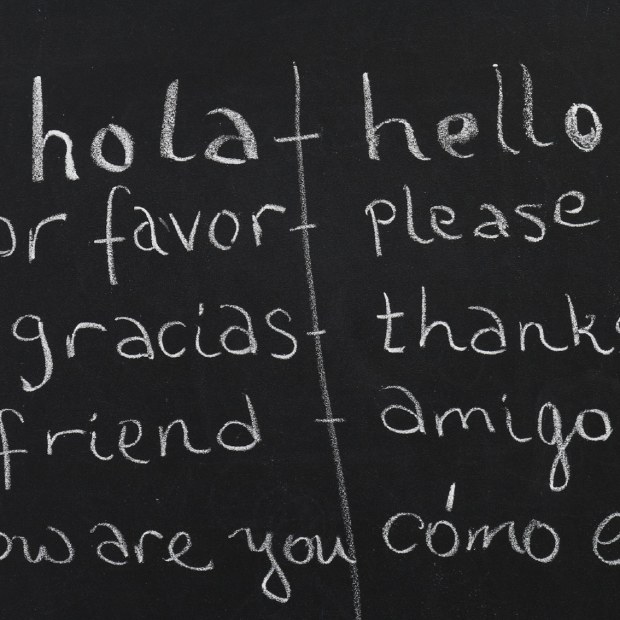 hola - hello
or favor - please
gracias - thanks
friend - amigo
ow are you cómo e